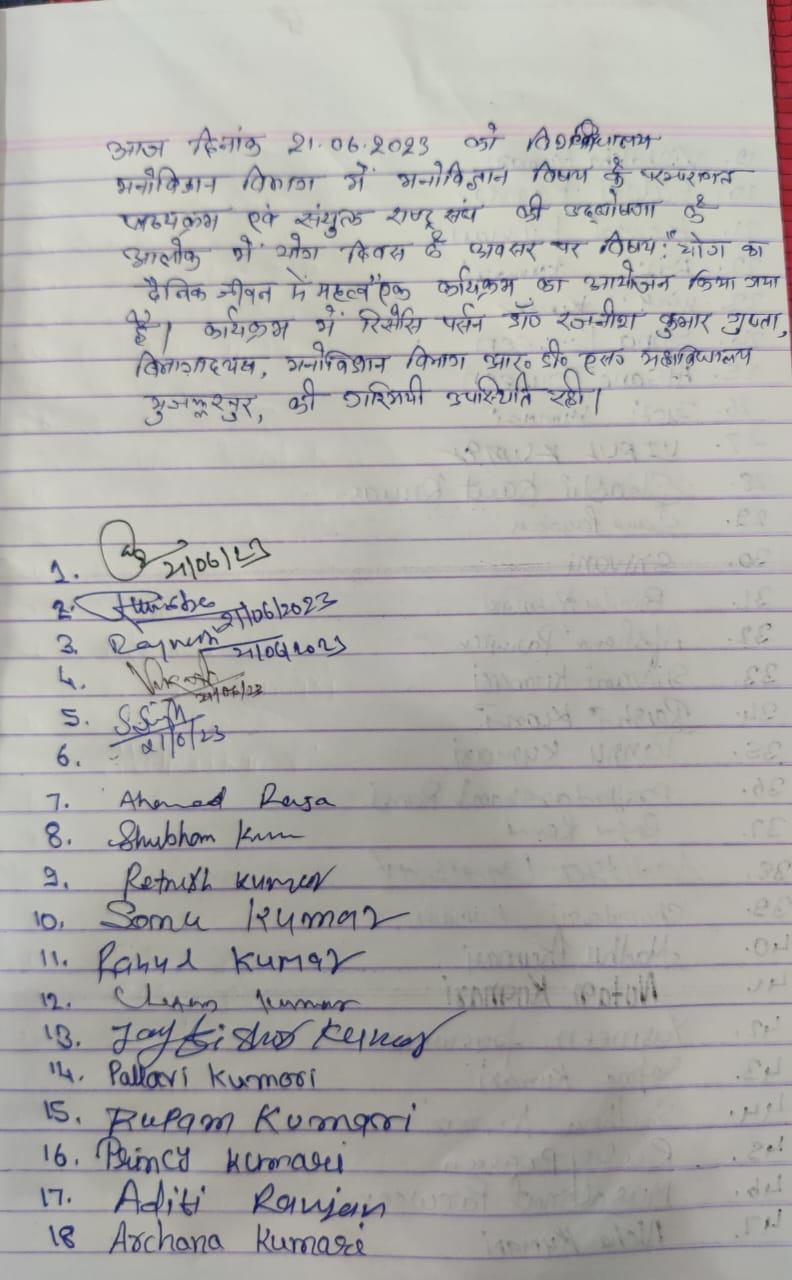 आज दिनांक 21.06.2023 को विश्वविद्यालय
मनोविज्ञान विभाग में मनोविज्ञान विषय के परम्परागत
पाठ्यक्रम एवं संयुक्त राष्ट्र संघ की उद्घोषणा के
आलोक में योग दिवस के अवसर पर विषय: "योग का
दैनिक जीवन में महत्व" एक कार्यक्रम का आयोजन किया गया
है। कार्यक्रम में रिसोर्स पर्सन डॉ० रजनीश कुमार गुप्ता,
विभागाध्यक्ष, मनोविज्ञान विभाग आर० डी० एस० महाविद्यालय
मुजफ्फरपुर, की गरिमयी उपस्थिति रही।
1. 21/06/23
2. 21/06/2023
3. Rajnish 21/06/2023
4. 21/06/23
5. S Singh
6. 21/6/23
7. Ahemad Raja
8. Shubham Kum
9. Retnesh kumar
10. Sonu Kumar
11. Rahul Kumar
12. kumar
13. Jay kishor Kumar
14. Pallavi Kumari
15. Rupam Kumari
16. Princy kumari
17. Aditi Ranjan
18 Archana Kumari